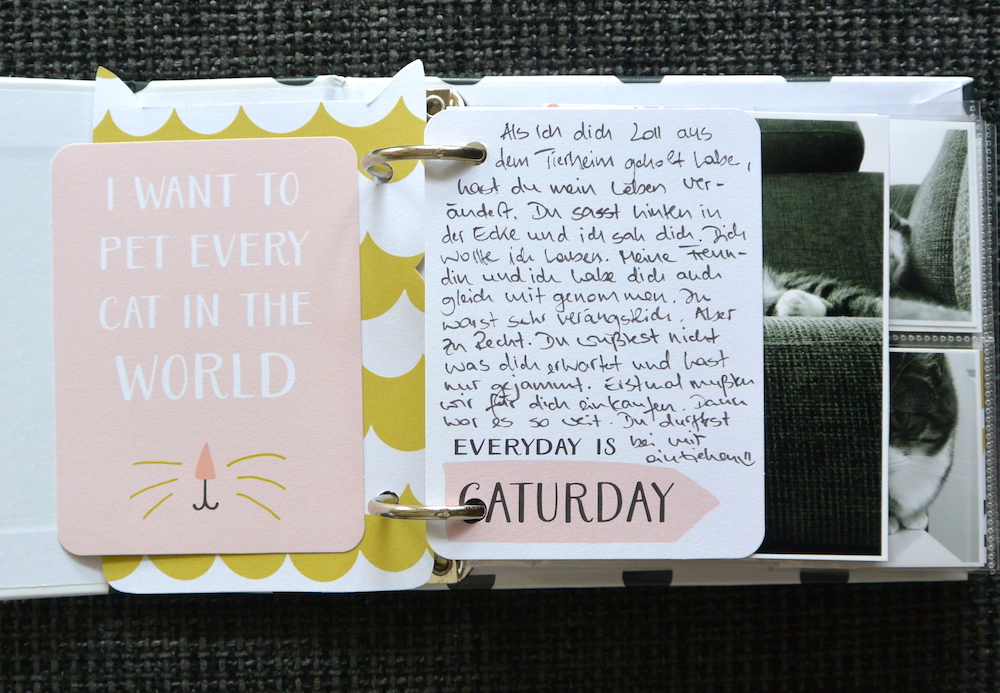 I WANT TO
PET EVERY
CAT IN THE
WORLD
Als ich dich Loll aus
dem Tierheim geholt habe,
hast du mein Leben ver-
ändert. Du sasst hinten in
der Ecke und ich sah dich. Dich
wollte ich haben. Meine Freun-
din und ich habe dich auch
gleich mit genommen. Du
warst sehr verängstlich. Aber
zu Recht. Du wußtest nicht
was dich erwartet und hast
nur gejammt. Erstmal mußten
wir für dich einkaufen. Dann
war es so weit. Du durftest
bei mir
einziehen
EVERYDAY IS
CATURDAY